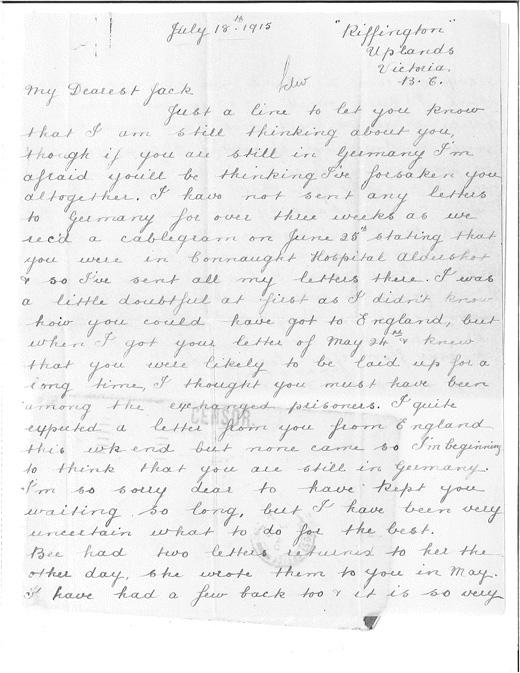 July 18.th 1915
"Riffington"
Uplands
Victoria.
B. C.
My Dearest Jack
Just a line to let you know
that I am still thinking about you,
though if you are still in Germany I'm
afraid you'll be thinking I've forsaken you
altogether. I have not sent any letters
to Germany for over three weeks as we
rec'd a cablegram on June 25th stating that
you were in Connaught Hospital Aldershot
& so I've sent all my letters there. I was
a little doubtful at first as I didn't know
how you could have got to England, but
when I got your letter of May 24th & knew
that you were likely to be laid up for a
long time, I thought you must have been
among the exchanged prisoners. I quite
expected a letter from you from England
this wk end but none came so I'm beginning
to think that you are still in Germany.
I'm so sorry dear to have kept you
waiting so long, but I have been very
uncertain what to do for the best.
Bee had two letters returned to her the
other day, she wrote them to you in May.
I have had a few back too & it is so very
CENSOR